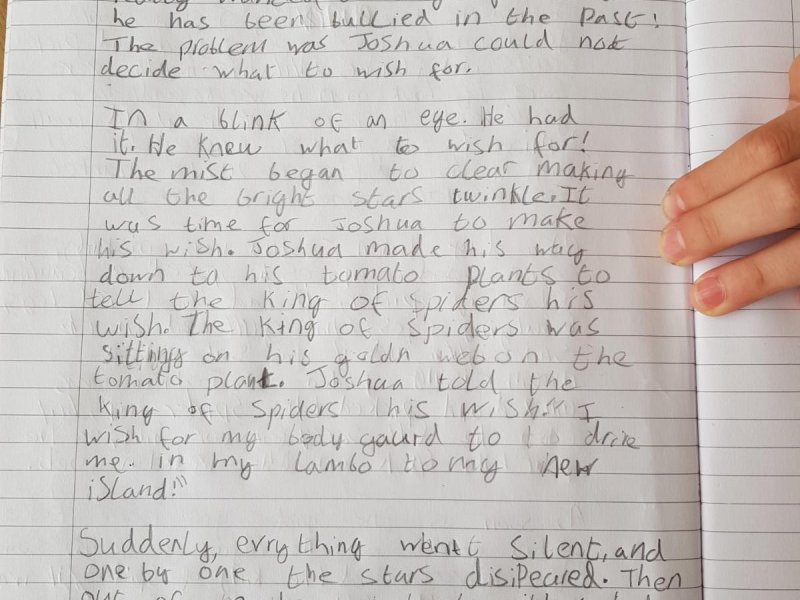 he has been bullied in the Past!
The problem was Joshua could not
decide what to wish for.
In a blink of an eye. He had
it. He knew what to wish for!
The mist began to clear making
all the bright stars twinkle. It
was time for Joshua to make
his wish. Joshua made his way
down to his tomato plants to
tell the king of spiders his
wish. The king of spiders was
sitting on his goldn web on the
tomato plant. Joshua told the
king of spiders his wish." I
wish for my body gaurd to drive
me. in my lambo to my new
island!"
Suddenly, evrything went silent, and
one by one the stars disipeared. Then
out of